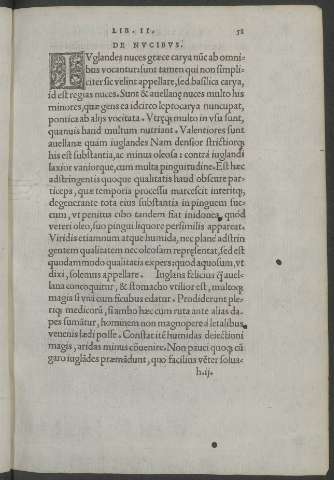 LIB. II. 58
DE NVCIBVS.
IVglandes nuces græce carya nūc ab omni⸗
bus vocantur: sunt tamen qui non simpli⸗
citer sic velint appellare, sed basilica carya,
id est regias nuces. Sunt & auellanę nuces multo his
minores, quæ gens ea idcirco leptocarya nuncupat,
pontica ab alijs vocitata. Vtręq; multo in vsu sunt,
quanuis haud multum nutriant. Valentiores sunt
auellanæ quàm iuglandes Nam densior strictiorq;
his est substantia, ac minus oleosa: contrà iuglandi
laxior vaniorque, cum multa pinguitudine. Est hæc
adstringentis quoque qualitatis haud obscure par⸗
ticeps, quæ temporis processu marcescit interitq;,
degenerante tota eius substantia in pinguem suc⸗
cum, vt penitus cibo tandem fiat inidonea, quod
veteri oleo, suo pingui liquore persimilis appareat.
Viridis etiamnum atque humida, nec planè adstrin
gentem qualitatem nec oleosam repręsentat, sed est
quodammodo qualitatis expers: quod aquosum, vt
dixi, solemus appellare. Iuglans felicius ꝗ̃ auel⸗
lana concoquitur, & stomacho vtilior est, multoq;
magis si vnà cum ficubus edatur. Prodiderunt ple⸗
riq; medicorū, si ambo hæc cum ruta ante alias da⸗
pes sumātur, hominem non magnopere à letalibus
venenis lędi posse. Constat itē humidas deiectioni
magis, aridas minus cōuenire. Non pauci quoq; cū
garo iuglādes præmādunt, quo facilius vēter solua⸗
h.ij.